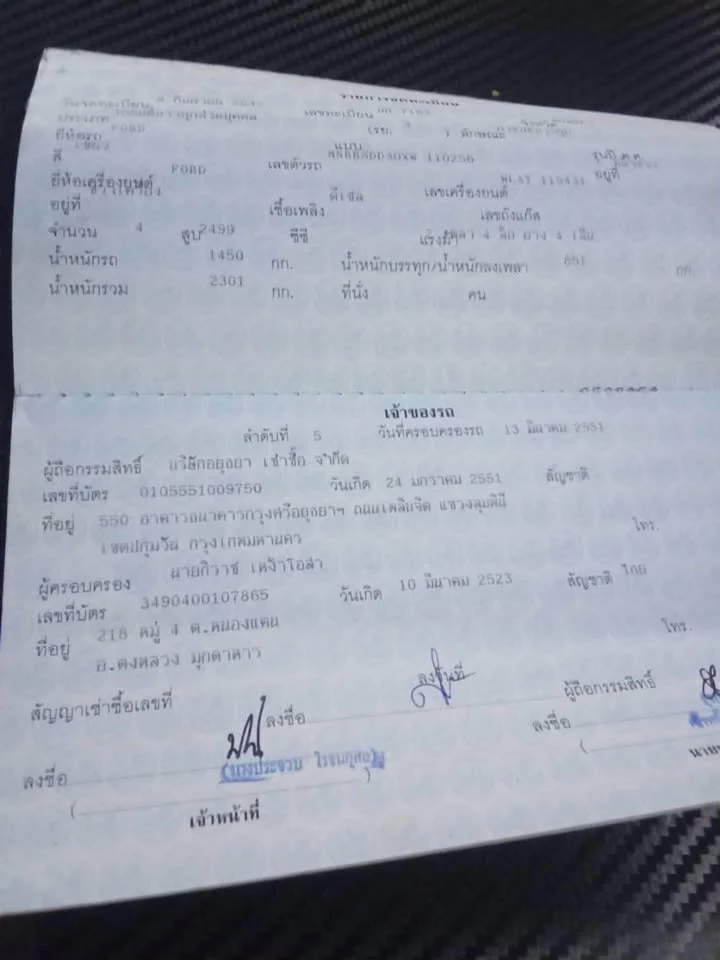 รายการจดทะเบียน
วันจดทะเบียน กันยายน เลขทะเบียน จังหวัด
ประเภท (รย. ) ลักษณะ
ยี่ห้อรถ FORD แบบ
สี เลขตัวรถ 110256 อยู่ที่
ยี่ห้อเครื่องยนต์ FORD เลขเครื่องยนต์ WLAT
อยู่ที่ เชื้อเพลิง ดีเซล เลขถังแก๊ส
จำนวน 4 สูบ 2499 ซีซี แรงม้า 2 เพลา 4 ล้อ ยาง 4 เส้น
น้ำหนักรถ 1450 กก. น้ำหนักบรรทุก/น้ำหนักลงเพลา 851 กก.
น้ำหนักรวม 2301 กก. ที่นั่ง คน
เจ้าของรถ
ลำดับที่ 5 วันที่ครอบครองรถ 13 มีนาคม 2551
ผู้ถือกรรมสิทธิ์ บริษัทอยุธยา เช่าซื้อ จำกัด
เลขที่บัตร 0105551009750 วันเกิด 24 มกราคม 2551 สัญชาติ
ที่อยู่ 550 อาคารธนาคารกรุงศรีอยุธยาฯ ถนนเพลินจิต แขวงลุมพินี
เขตปทุมวัน กรุงเทพมหานคร โทร.
ผู้ครอบครอง นายทิวาช
เลขที่บัตร 3490400107865 วันเกิด 10 มีนาคม 2523 สัญชาติ ไทย
ที่อยู่ 218 หมู่ 4 ต.หนองแคน
อ.ดงหลวง มุกดาหาร โทร.
สัญญาเช่าซื้อเลขที่ ลงวันที่ ผู้ถือกรรมสิทธิ์
ลงชื่อ ลงชื่อ
ลงชื่อ (นางประจวบ
เจ้าหน้าที่